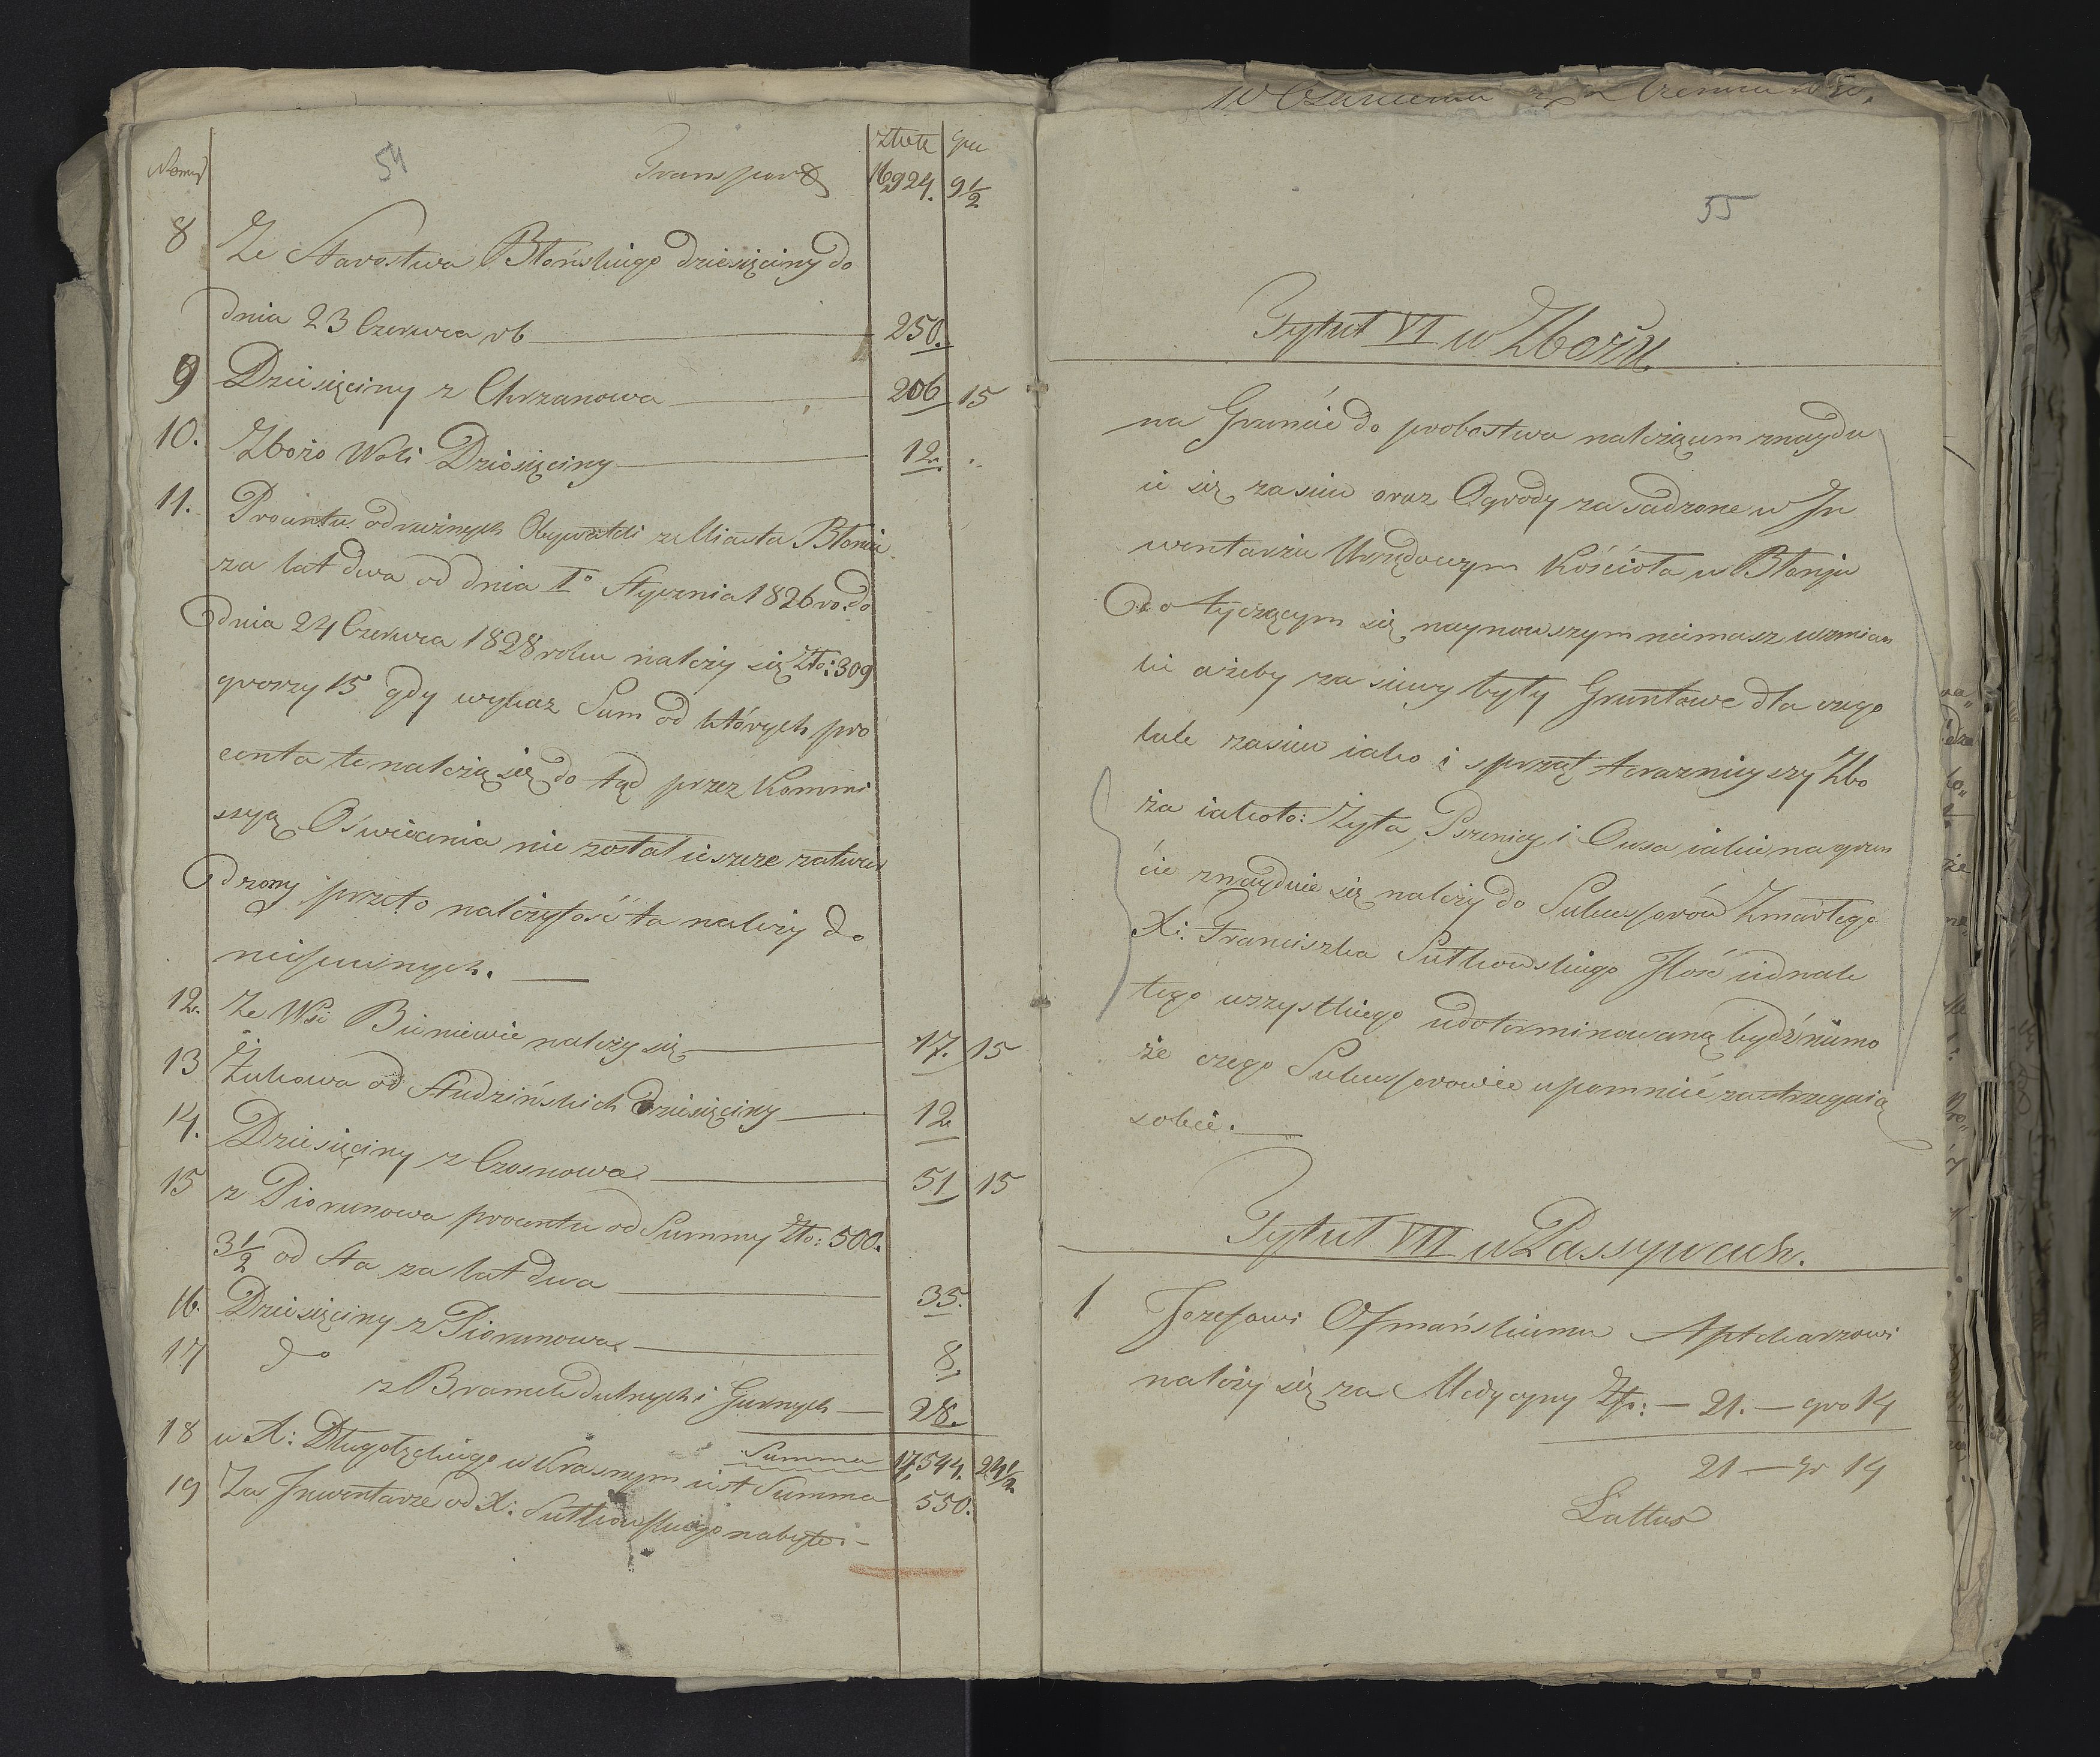 54
Numer Transport Złote gru
16924. 9½
8 Ze Starostwa Błońskiego dziesięciny do
dnia 23 Czerwca rb — 250.
9 Dziesięciny z Chrzanowa — 206 15
10. Zbożo Woli Dziesięciny — 12. ..
11. Procentu od roźnych Obywateli z Miasta Błonia
za lat dwa od dnia 1º Stycznia 1826 ro: do
dnia 24 Czerwca 1828 roku należy się Zło: 309
groszy 15 gdy wykaz Sum od których pro
centa te należą się do tąd przez Kommi
ssyą Oświecenia nie został ieszcze zatwier
dzony przeto należytość ta należy do
niepewnych. —
12. Ze Wsi Bieniewic należy się — 17. 15
13 Żukowa od Studzińskich dziesięciny — 12
14. Dziesięciny z Czosnowa — 51 15
15 z Piorunowa procentu od Summy Zło: 500.
3½ od Sta za lat dwa — 35.
16. Dziesięciny z Piorunowa — 8.
17 do
z Bramek dulnych i Gurnych — 28.
Summa 17,544. 24½
18 u X: Długołęckiego w Krasnym iest Summa 550.
19 Za Inwentarze od X: Sutkowskiego nabyte. —
55
Tytuł VI w Zbożu.
na Gruncie do probostwa należącem znaydu
ie się zasiew oraz Ogrody zasadzone w In
wentarzu Urzędowym Kościoła w Błoniu
Do tyczącym się naynowszym niemasz wzmian
ki ażeby zasiewy były Gruntowe dla czego
tak zasiew iako i sprzęt terazniyszy Zbo
ża iakoto: Żyta, Pszenicy i Owsa iakie na grun
cie znayduie się należy do Sukcessorów Zmarłego
X: Franciszka Sutkowskiego Ilość iednak
tego wszystkiego udoterminowaną bydź niemo
że czego Sukcessorowie upomnić zastrzegaią
sobie. —
Tytuł VII w Passywach.
1 Jozefowi Ofmańskiemu Aptekarzowi
należy się za Medycyny Złp: — 21. — gro 14
21 — gr 14
Lattus